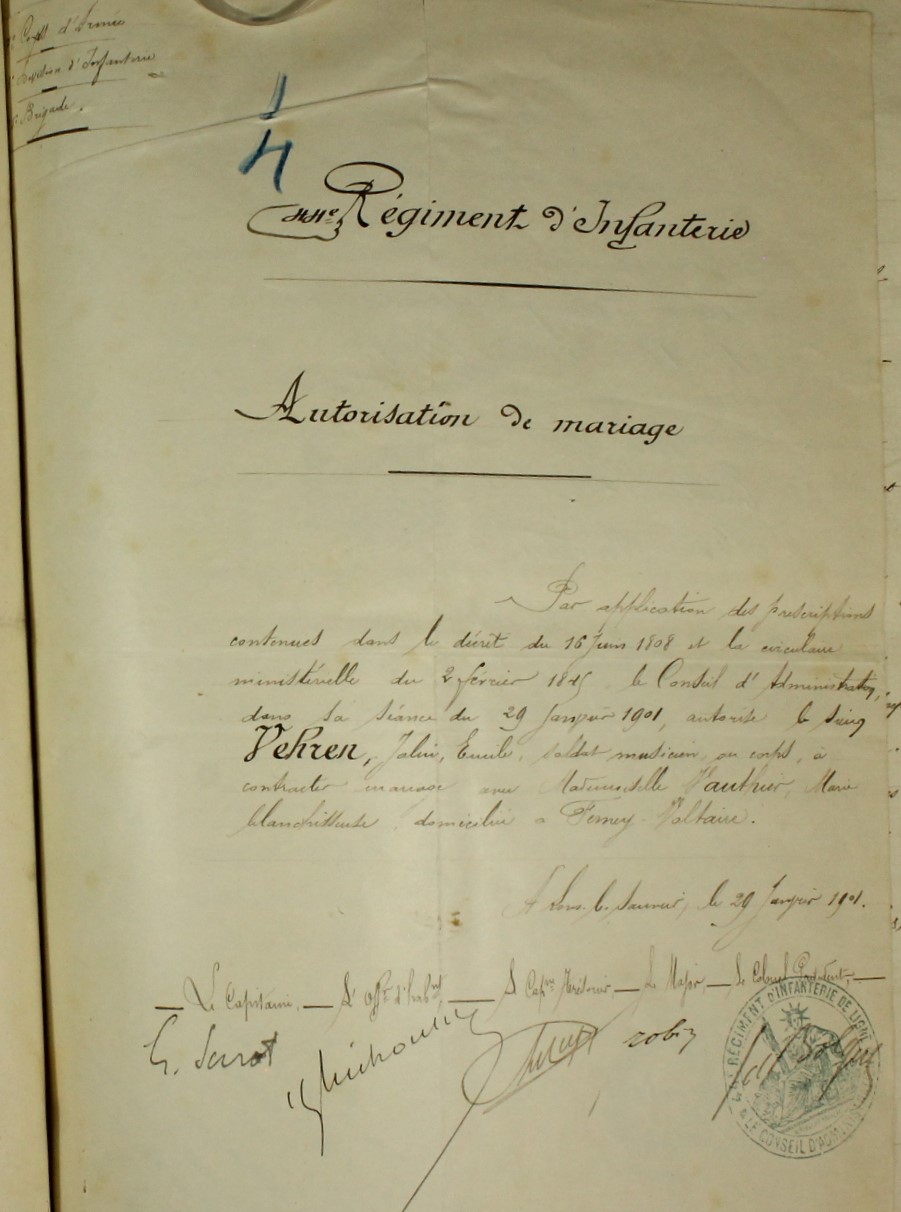 Corps d'Armée
Division d'Infanterie
Brigade.
1
4
44e Régiment d'Infanterie
Autorisation de mariage
Par application des prescriptions
contenues dans le décret du 16 Juin 1808 et la circulaire
ministérielle du 2 février 1845 le Conseil d'Administration,
dans sa séance du 29 Janvier 1901, autorise le sieur
Vehren, Jules, Emile, soldat musicien, au corps, à
contracter mariage avec Mademoiselle Vauthier, Marie
blanchisseuse, domiciliée à Ferney-Voltaire.
A Lons-le-Saunier, le 29 Janvier 1901.
Le Capitaine, L'Offr d'habnt, Le Capne Trésorier Le Major Le Colonel Président,
RÉGIMENT D'INFANTERIE DE LIGNE
LE CONSEIL D'ADM